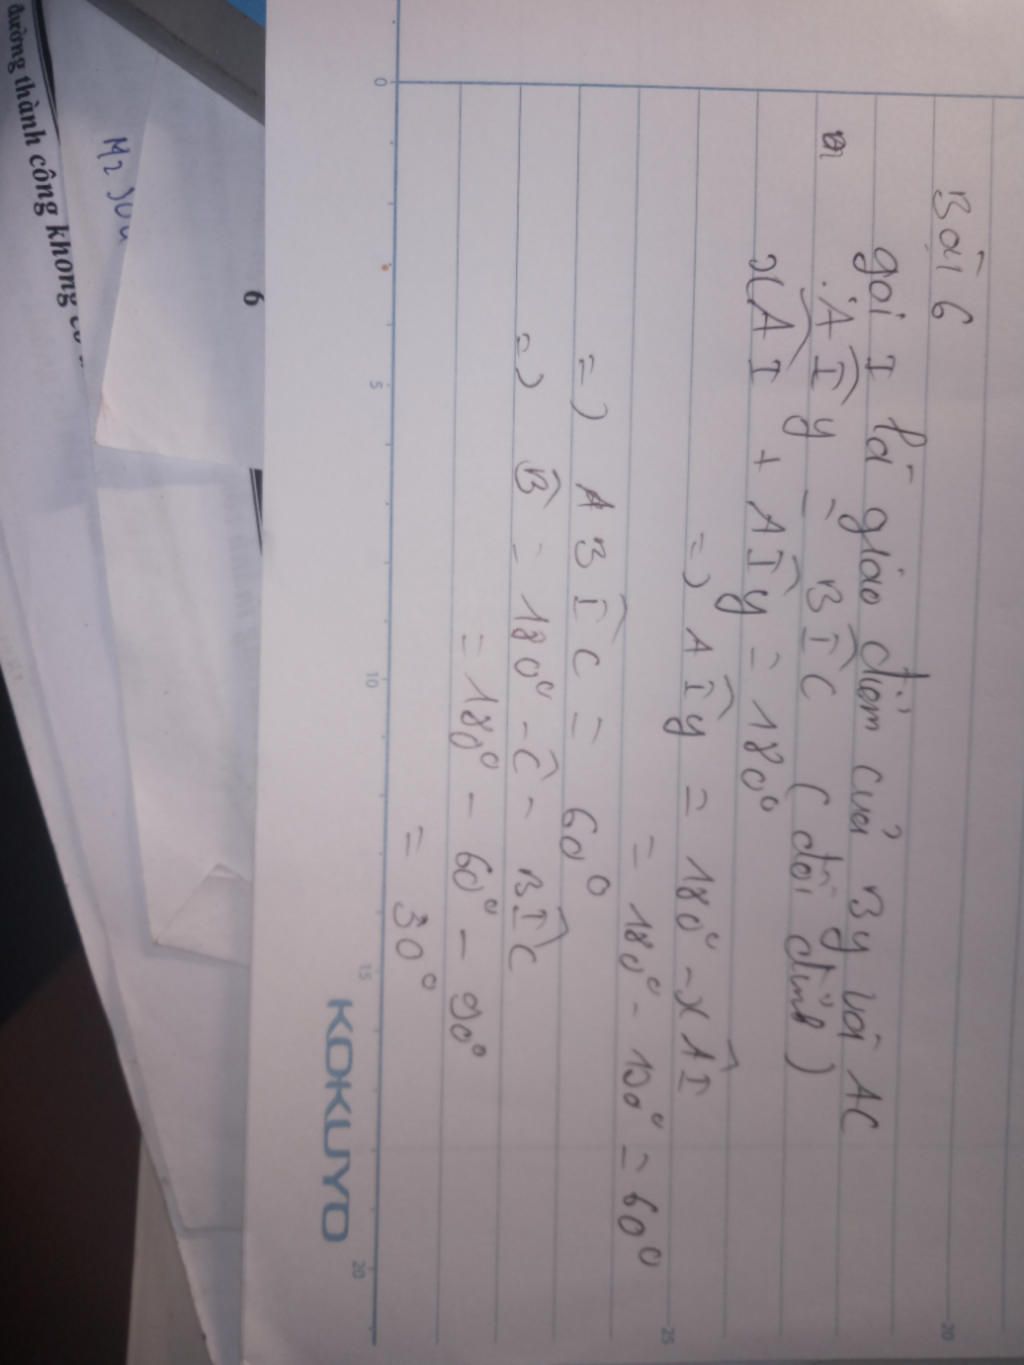 Bài 6
gọi I là giao điểm của By và AC
AÎy = BÎC (đối đỉnh)
xÂI + AÎy = 180°
=> AÎy = 180° - xÂI
= 180° - 120° = 60°
=> ABÎC = 60°
=> B̂ = 180° - Ĉ - BÎC
= 180° - 60° - 90°
= 30°
KOKUYO
0
5
10
15
20
20
25
6
Mr Sơn
đường thành công không có